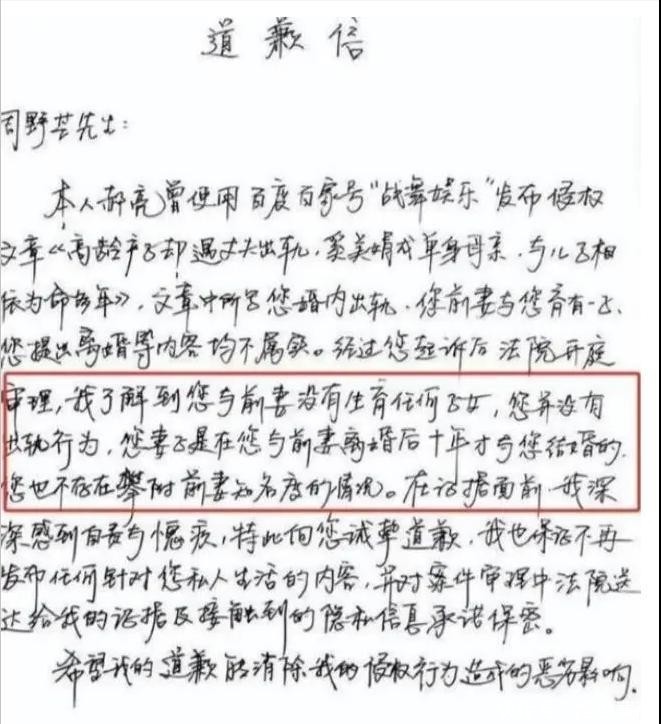 道歉信
周野芒先生:
本人郝亮曾使用百度百家号“战舞娱乐”发布侵权
文章《高龄产子却遇丈夫出轨,奚美娟成单身母亲,与儿子相
依为命多年》,文章中所写您婚内出轨、您前妻与您育有一子、
您提出离婚等内容均不属实。经过您起诉后法院开庭
审理,我了解到您与前妻没有生育任何子女,您并没有
出轨行为,您妻子是在您与前妻离婚后十年才与您结婚的,
您也不存在攀附前妻知名度的情况。在证据面前,我深
深感到自责与愧疚,特此向您诚挚道歉,我也保证不再
发布任何针对您私人生活的内容,并对案件审理中法院送
达给我的证据及接触到的隐私信息承诺保密。
希望我的道歉能消除我的侵权行为造成的恶劣影响.